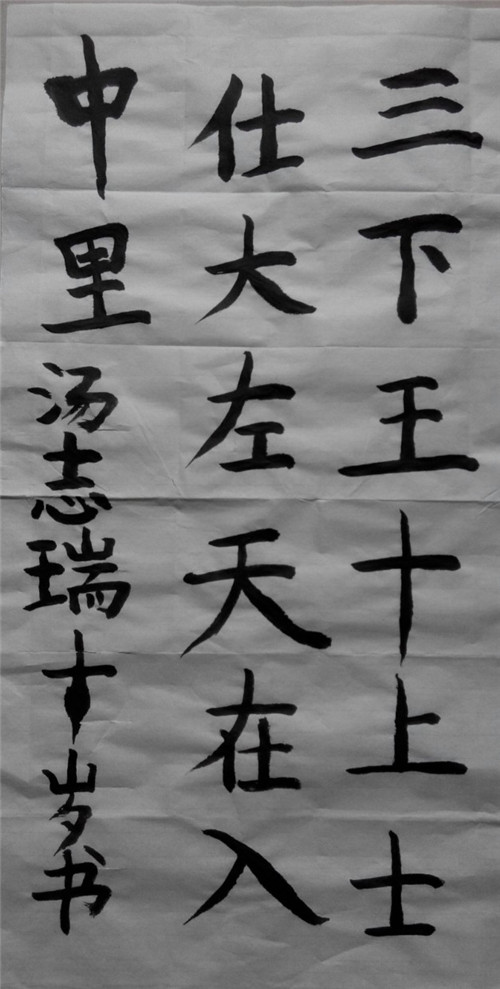 三下王十上士
仕大左天在入
中里
汤志瑞十岁书